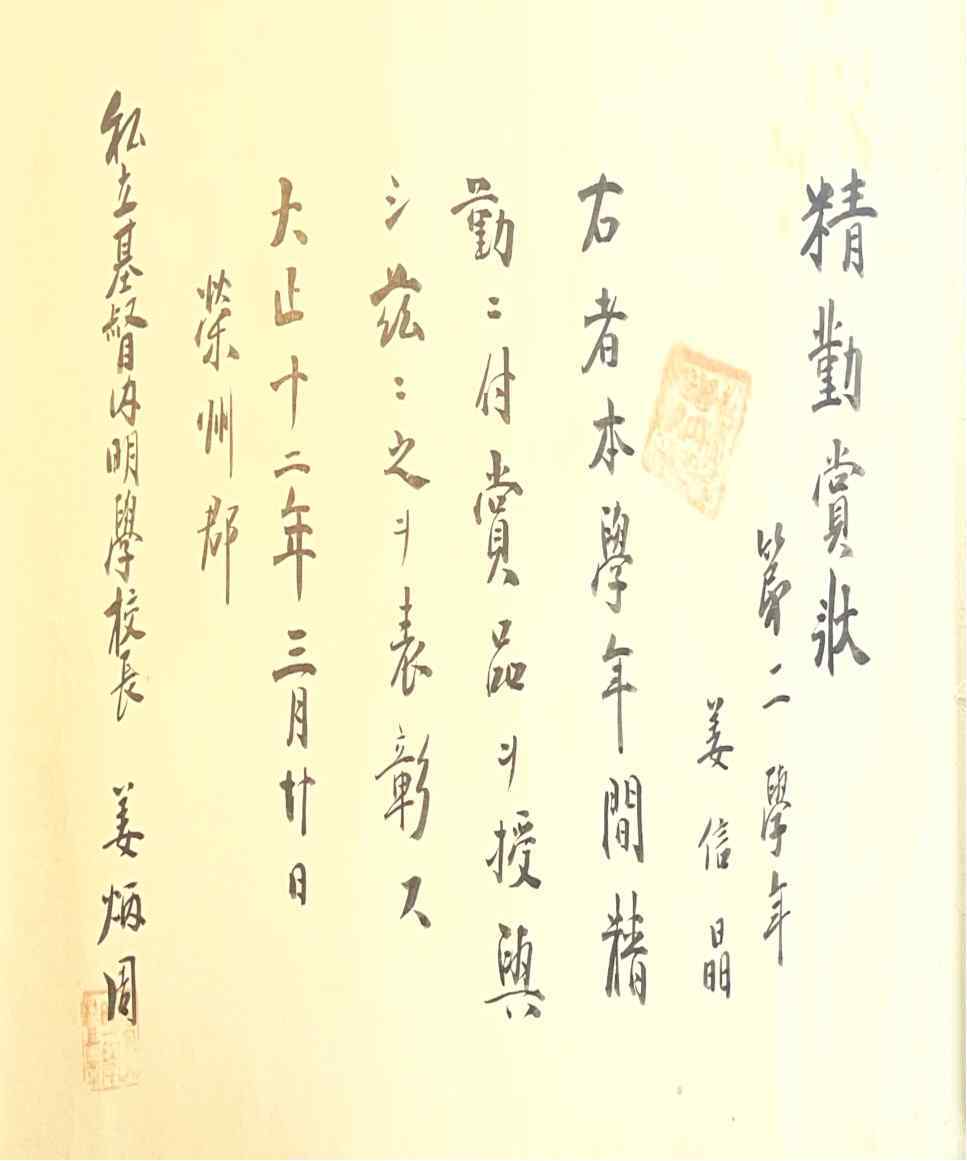 精勤賞狀
第二學年
姜信晶
右者本學年間精
勤ニ付賞品ヲ授與
シ茲ニ之ヲ表彰ス
大正十二年三月廿日
榮州郡
私立基督内明學校長 姜炳周